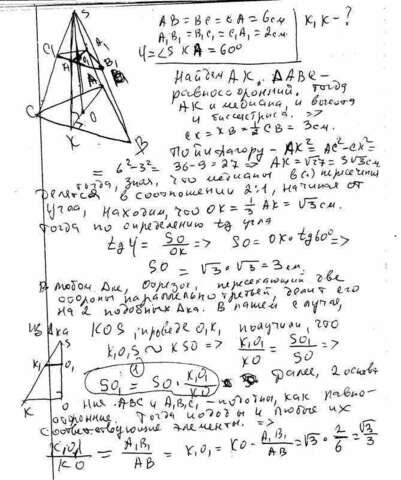 AB = BC = CA = 6см
A₁B₁ = B₁C₁ = C₁A₁ = 2см.
K₁K - ?
φ = ∠SKA = 60°
S
C₁
A₁
B₁
A
C
O
K
B
Найдём AK. △ABC -
равносторонний. Тогда
AK и медиана, и высота
и биссектриса. =>
CK = KB = ½ CB = 3см.
По Пифагору - AK² = AC² - CK² =
= 6² - 3² = 36 - 9 = 27 => AK = √27 = 3√3 см
Тогда, зная, что медианы в (·) пересечения
делятся в соотношении 2:1, начиная от
угла, находим, что OK = ⅓ AK = √3 см.
Тогда по определению tg угла
tg φ = SO/OK => SO = OK · tg 60° =>
SO = √3 · √3 = 3 см.
В любом △ке, отрезок, пересекающий две
стороны параллельно третьей, делит его
на 2 подобных △ка. В нашем случае,
из △ка KOS, проведя O₁K₁ получили, что
S
K₁
O₁
K
O
K₁O₁S ~ KSO => K₁O₁/KO = SO₁/SO =>
①
SO₁ = SO · K₁O₁/KO
Далее, 2 основа
ния ABC и A₁B₁C₁ - подобны, как равно-
сторонние. Тогда подобны и любые их
соответствующие элементы. =>
K₁O₁/KO = A₁B₁/AB = K₁O₁ = KO · A₁B₁/AB = √3 · 2/6 = √3/3